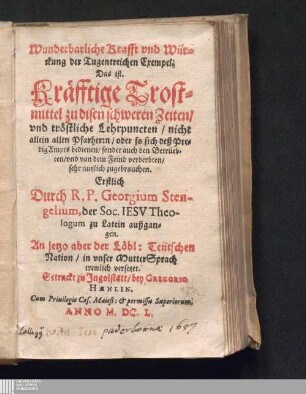 Wunderbarliche Krafft vnd Wür-
ckung der Tugentreichen Exempel:
Das ist.
Kräfftige Trost-
mittel zu disen schweren Zeiten/
vnd tröstliche Lehrpuncten / nicht
allein allen Pfarherrn / oder so sich deß Pre-
dig Ampts bedienen / sonder auch den Betrüeb-
ten/vnd von dem Feind verderbten/
sehr nutzlich zugebrauchen.
Erstlich
Durch R. P. Georgium Sten-
gelium, der Soc. IESV Theo-
logum zu Latein außgan-
gen.
An jetzo aber der Löbl: Teütschen
Nation / in vnser MutterSprach
trewlich versetzt.
Getruckt zu Ingolstatt/ bey GREGORIO
HÆNLIN.
Cum Privilegio Cæs. Maiest: & permissu Superiorum.
ANNO M. DC. L.
Collegij Soc. Jesu paderbornæ 1657